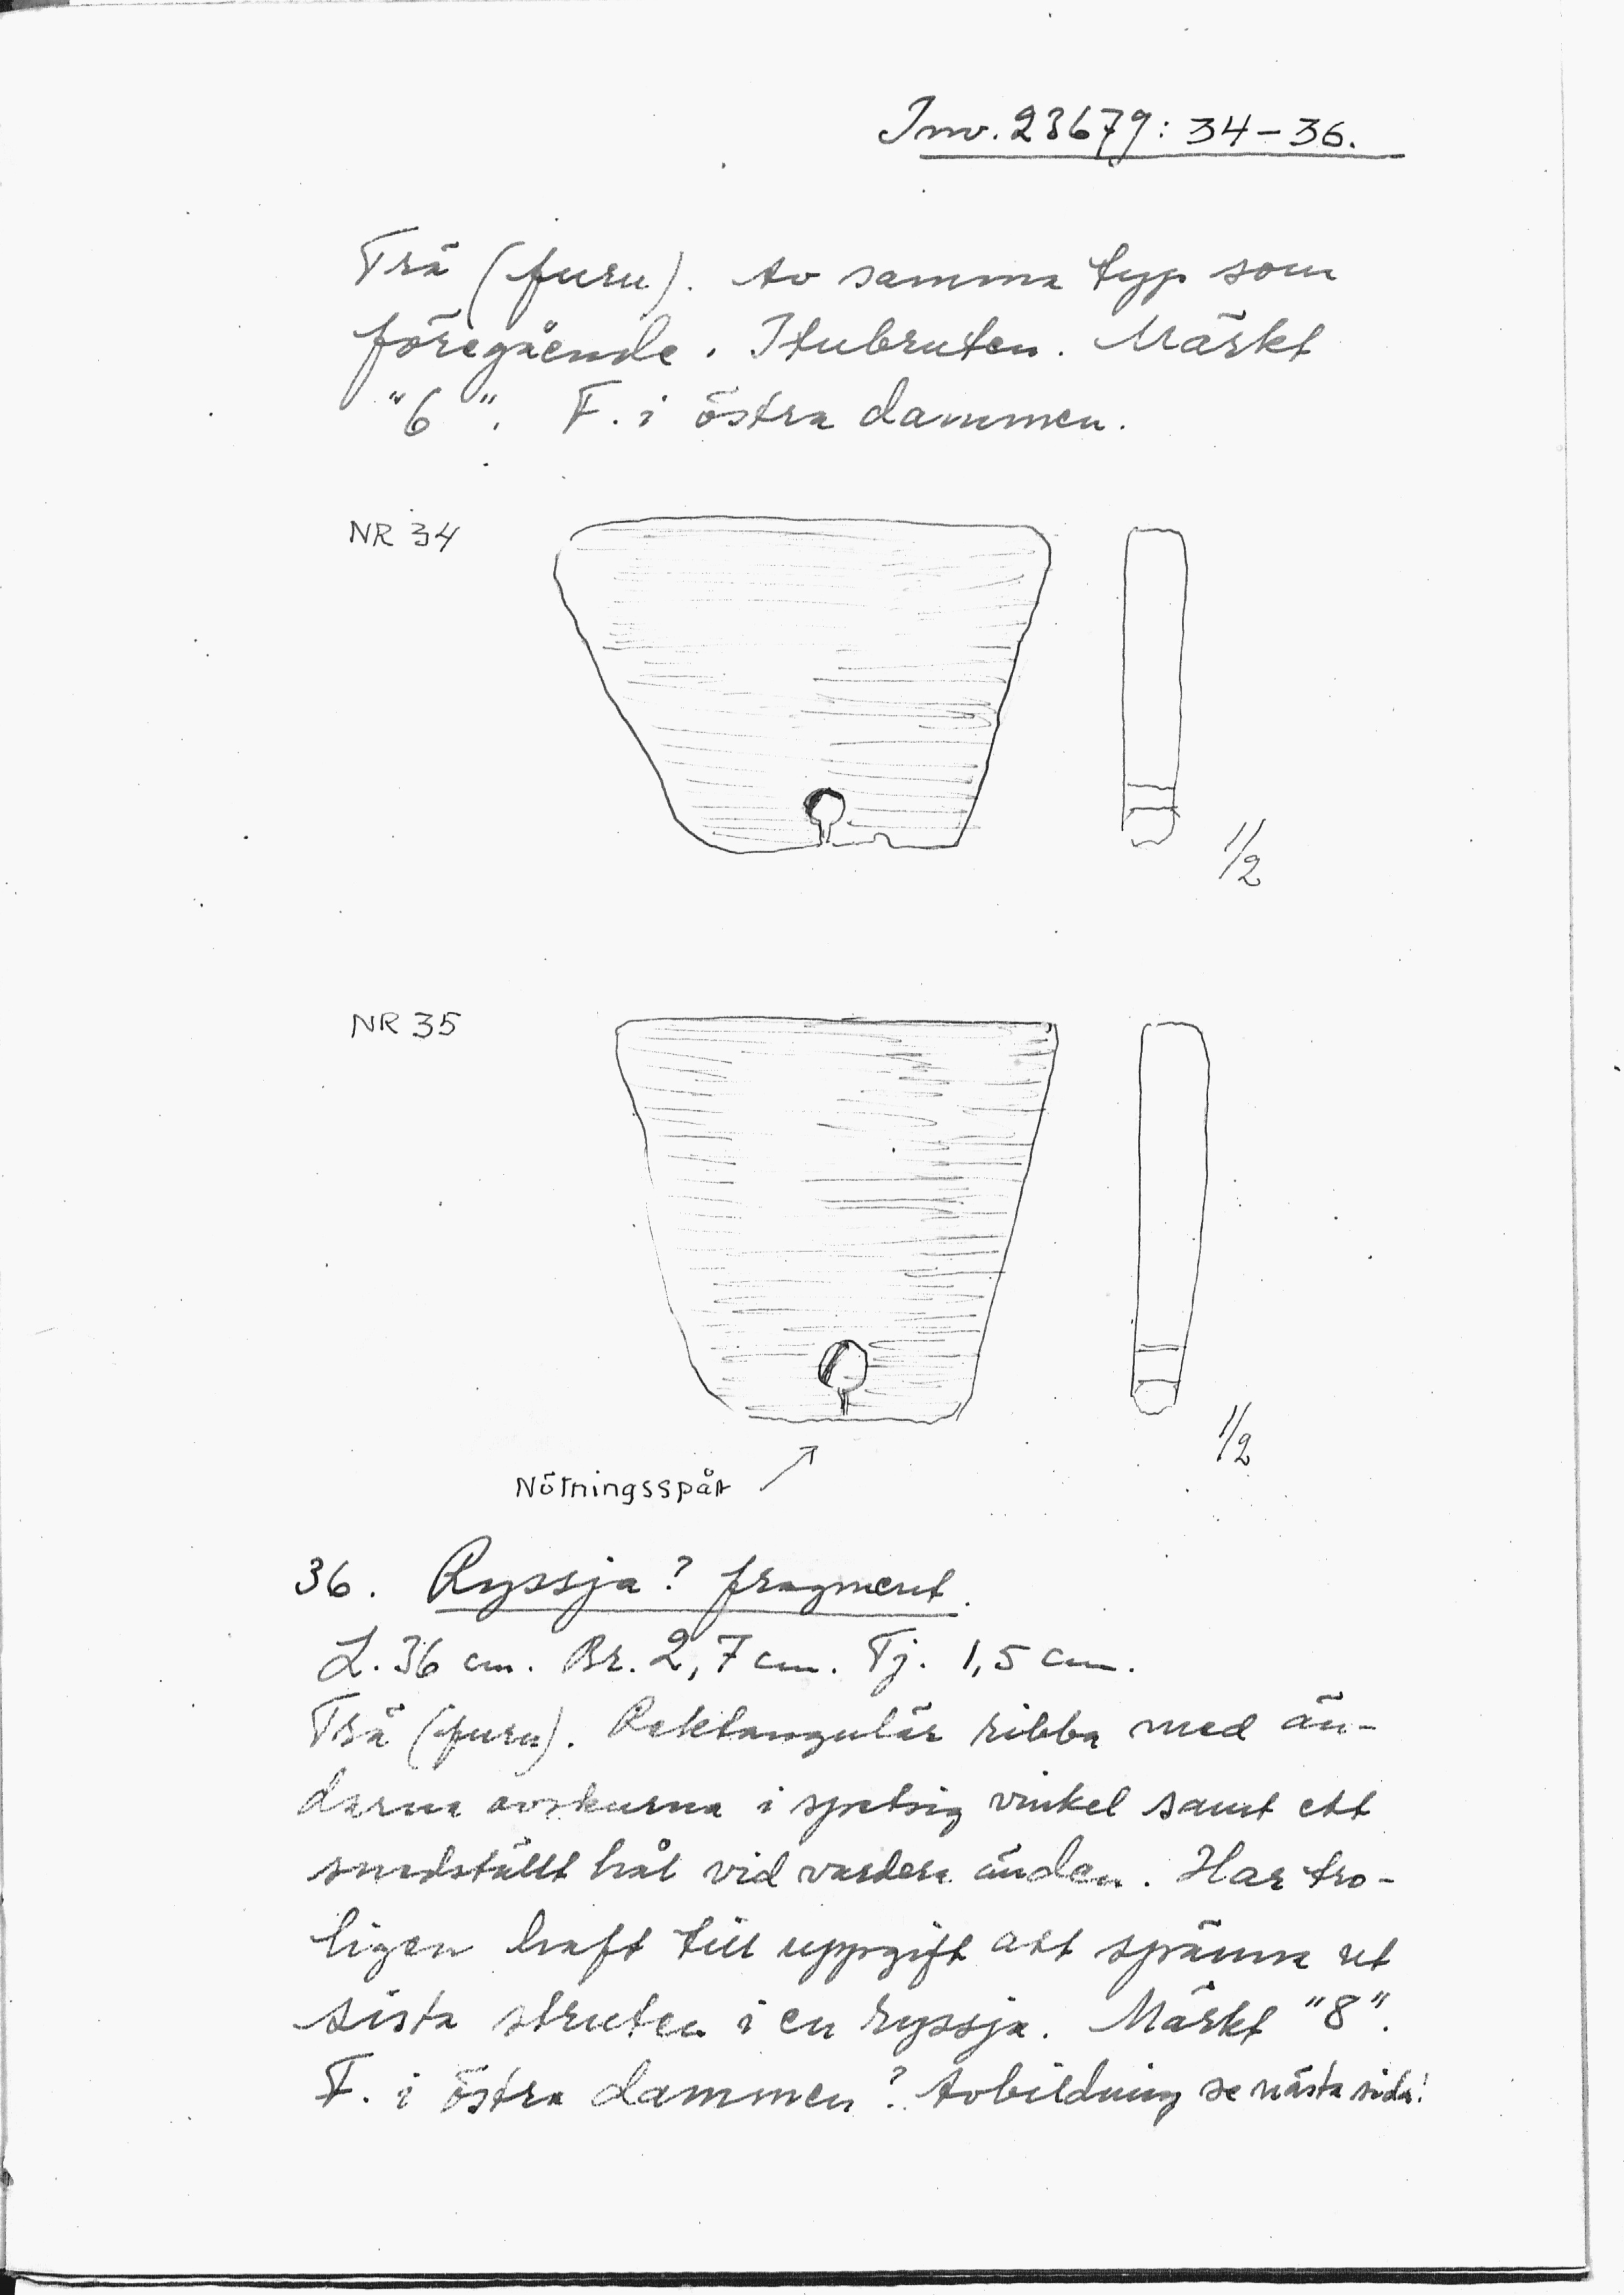 Inv. 23679: 34-36.
Trä (furu). Av samma typ som
föregående. Itubruten. Märkt
"6". F. i östra dammen.
NR 34
1/2
NR 35
1/2
Nötningsspår
36. Ryssja? fragment.
L. 36 cm. Br. 2,7 cm. Tj. 1,5 cm.
Trä (furu). Rektangulär ribba med än-
darna avskurna i spetsig vinkel samt ett
snedställt hål vid vardera änden. Har tro-
ligen haft till uppgift att spänna ut
sista struten i en ryssja. Märkt "8".
F. i östra dammen? Avbildning se nästa sida!